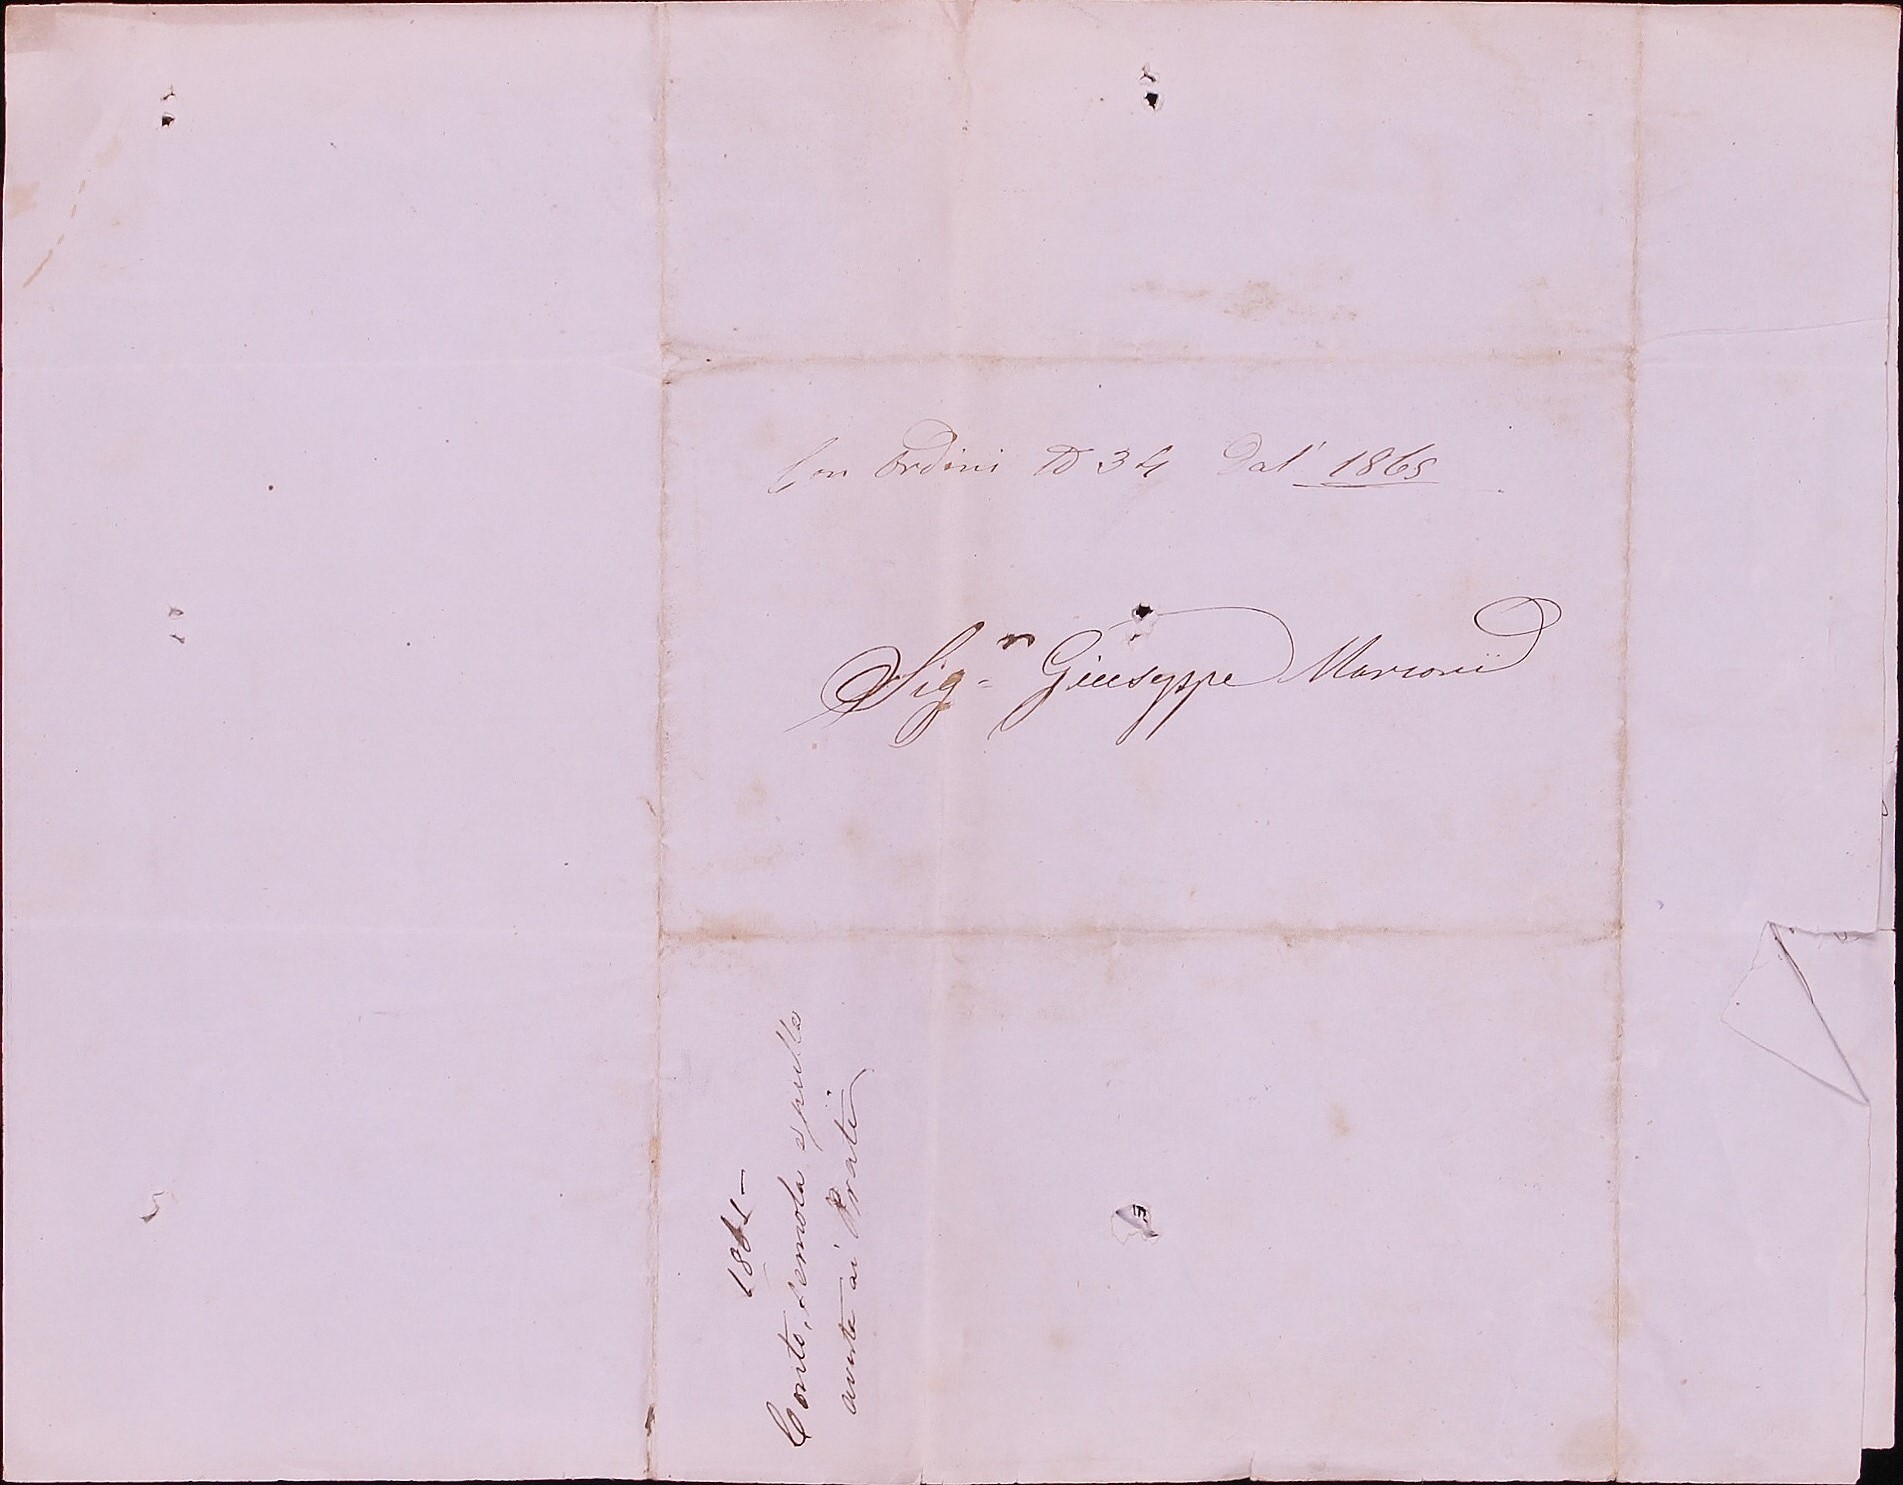 Con Ordini N 34 Dal 1865
Sig.r Giuseppe Marconi
186
Conto, semola e
avuta ai Prati